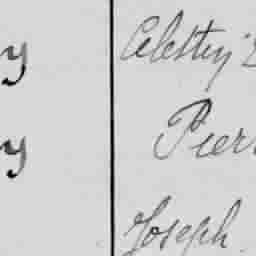 y Celestin
y Pierr
Joseph